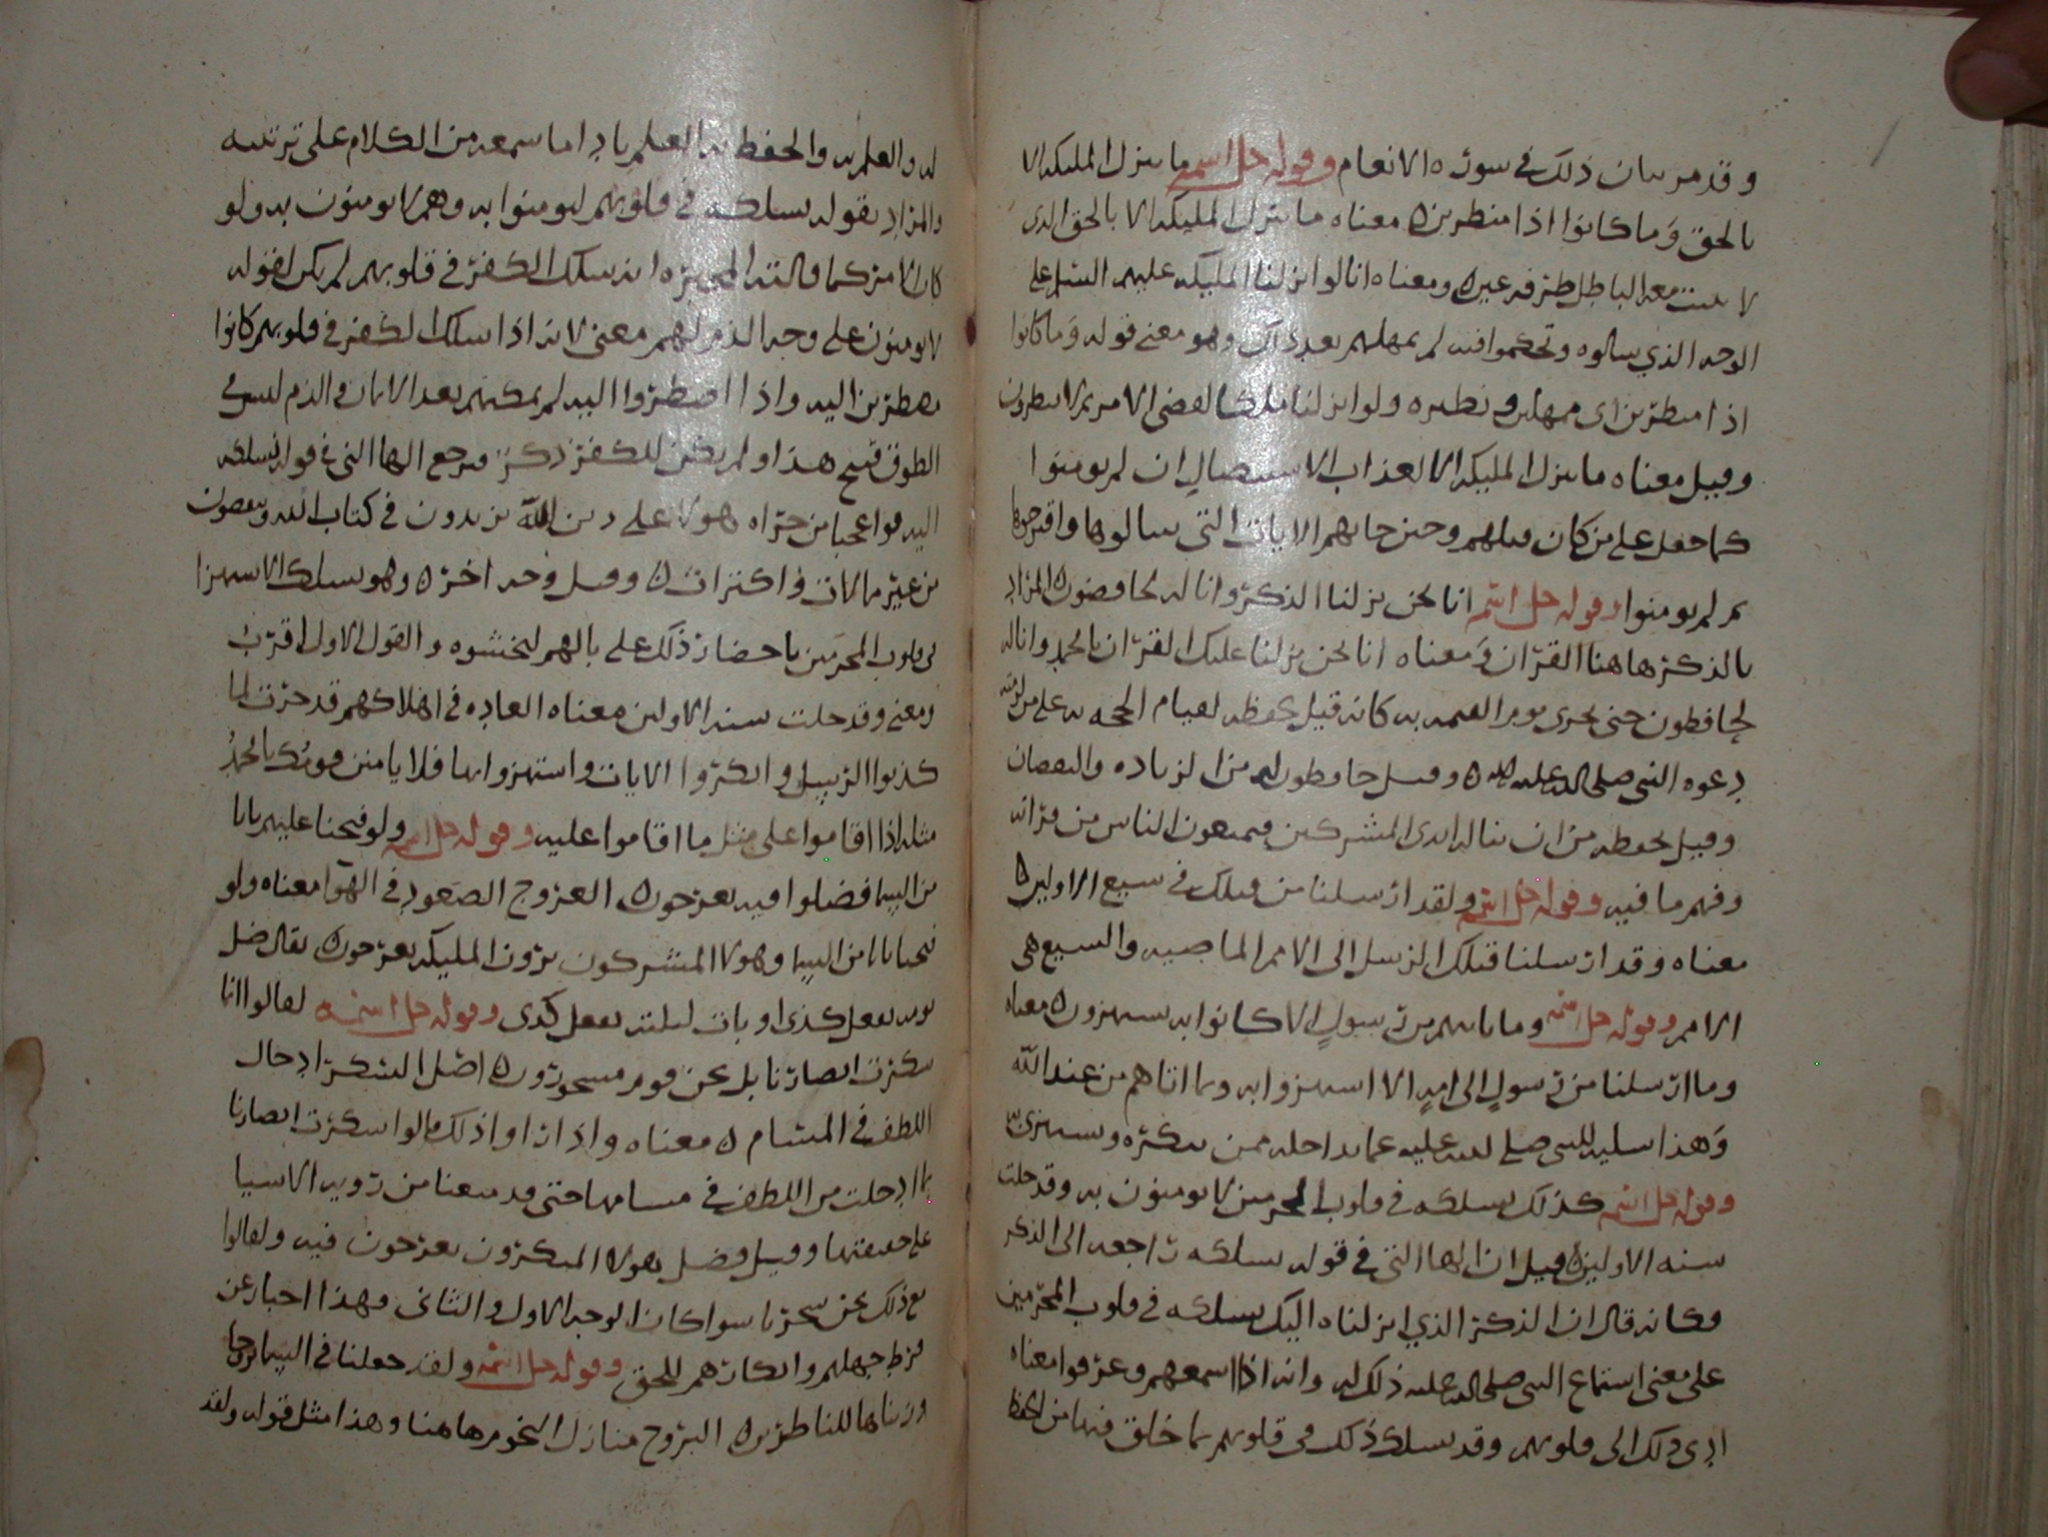 وقد مر بيان ذلك في سورة الانعام وقوله جل اسمه ما ننزل المليكه الا
بالحق وما كانوا اذا منظرين معناه ما ننزل المليكه الا بالحق الذي
لا يلبث معه الباطل طرفه عين ومعناه انا لو انزلنا المليكه عليهم السلم على
الوجه الذي سالوه وتحكموا فيه لم يمهلهم بعد ذلك وهو معنى قوله وما كانوا
اذا منظرين اي ممهلين ونظيره ولو انزلنا ملكا لقضي الامر ثم لا ينظرون
وقيل معناه ما ننزل المليكه الا لعذاب الاستيصال ان لم يومنوا
كما جعل على من كان قبلهم وحين جاتهم الايات التي سالوها واقترحوها
ثم لم يومنوا وقوله جل اسمه انا نحن نزلنا الذكر وانا له لحافضون المراد
بالذكر هاهنا القران ومعناه انا نحن نزلنا عليك القران يا محمد وانا له
لحافظون حتى يجري يوم القيمه به كانه قيل يحفظه لقيام الحجه به على من لزمته
دعوه النبي صلى الله عليه وقيل حافظون له من الزياده والنقصان
وقيل يحفظه من ان تناله ايدي المشركين فيمنعون الناس من قراته
وفهم ما فيه وقوله جل اسمه ولقد ارسلنا من قبلك في شيع الاولين
معناه وقد ارسلنا قبلك الرسل الى الامم الماضيه والشيع هي
الامم وقوله جل اسمه وما ياتيهم من رسول الا كانوا به يستهزون معناه
وما ارسلنا من رسول الى امه الا استهزوا به وبما اتاهم من عند الله
وهذا تسليه للنبي صلى الله عليه عما يداخله ممن ينكره ويستهزئ به
وقوله جل اسمه كذلك نسلكه في قلوب المجرمين لا يومنون به وقد خلت
سنه الاولين قيل ان الها التي في قوله نسلكه راجعه الى الذكر
فكانه قال ان الذكر الذي انزلناه اليك نسلكه في قلوب المجرمين
على معنى استماع النبي صلى الله عليه ذلك له وانه اذا اسمعهم وعرفوا معناه
ادى ذلك الى قلوبهم وقد نسلك ذلك في قلوبهم بما خلق فيها من الحفظ
له والعلم به والحفظ به العلم بادا ما سمعه من الكلام على ترتيبه
والمراد بقوله نسلكه في قلوبهم ليومنوا به وهم لا يومنون به ولو
كان الامر كما قالته المجبره انه سلك الكفر في قلوبهم لم يكن لقوله
لا يومنون على وجه الذم لهم معنى لانه اذا سلك الكفر في قلوبهم كانوا
مضطرين اليه واذا اضطروا اليه لم يمكنهم بعد الايمان والذم ليس في
الطوق قبيح هذا ولم يكن للكفر ذكر فيرجع الها التي في قوله نسلكه
اليه فواعجبا من جراه هولا على دين الله يزيدون في كتاب الله وينقصون
من غير مبالات واكتراث وقيل وجه اخر وهو نسلك الاستهزا
في قلوب المجرمين باحضار ذلك على بالهم ليخشوه والقول الاول اقرب
ومعنى وقد خلت سنه الاولين معناه العاده في اهلاكهم قد جرت لما
كذبوا الرسل وانكروا الايات واستهزوا بها فلا يامنن قومك يا محمد
مثله اذا اقاموا على مثل ما اقاموا عليه وقوله جل اسمه ولو فتحنا عليهم بابا
من السما فضلوا فيه يعرجون العروج الصعود في الهوا معناه ولو
فتحنا بابا من السما وهولا المشركون يرون المليكه يعرجون يقال ضل
يومه يفعل كذى او بات ليلته يفعل كذى وقوله جل اسمه لقالوا انما
سكرت ابصارنا بل نحن قوم مسحورون اصل السكر ادخال
اللطف في المسام معناه واذا راوا ذلك قالوا سكرت ابصارنا
بما ادخلت من اللطف في مسامها حتى قد منعنا من رويه الاشيا
على حقيقتها وقيل فضل هولا المنكرون يعرجون فيه ولقالوا
مع ذلك نحن سحرنا سوا كان الوجه الاول والثاني فهذا اخبار عن
فرط جهلهم وانكارهم للحق وقوله جل اسمه ولقد جعلنا في السما بروجا
وزيناها للناظرين البروج منازل النجوم هاهنا وهذا مثل قوله ولقد